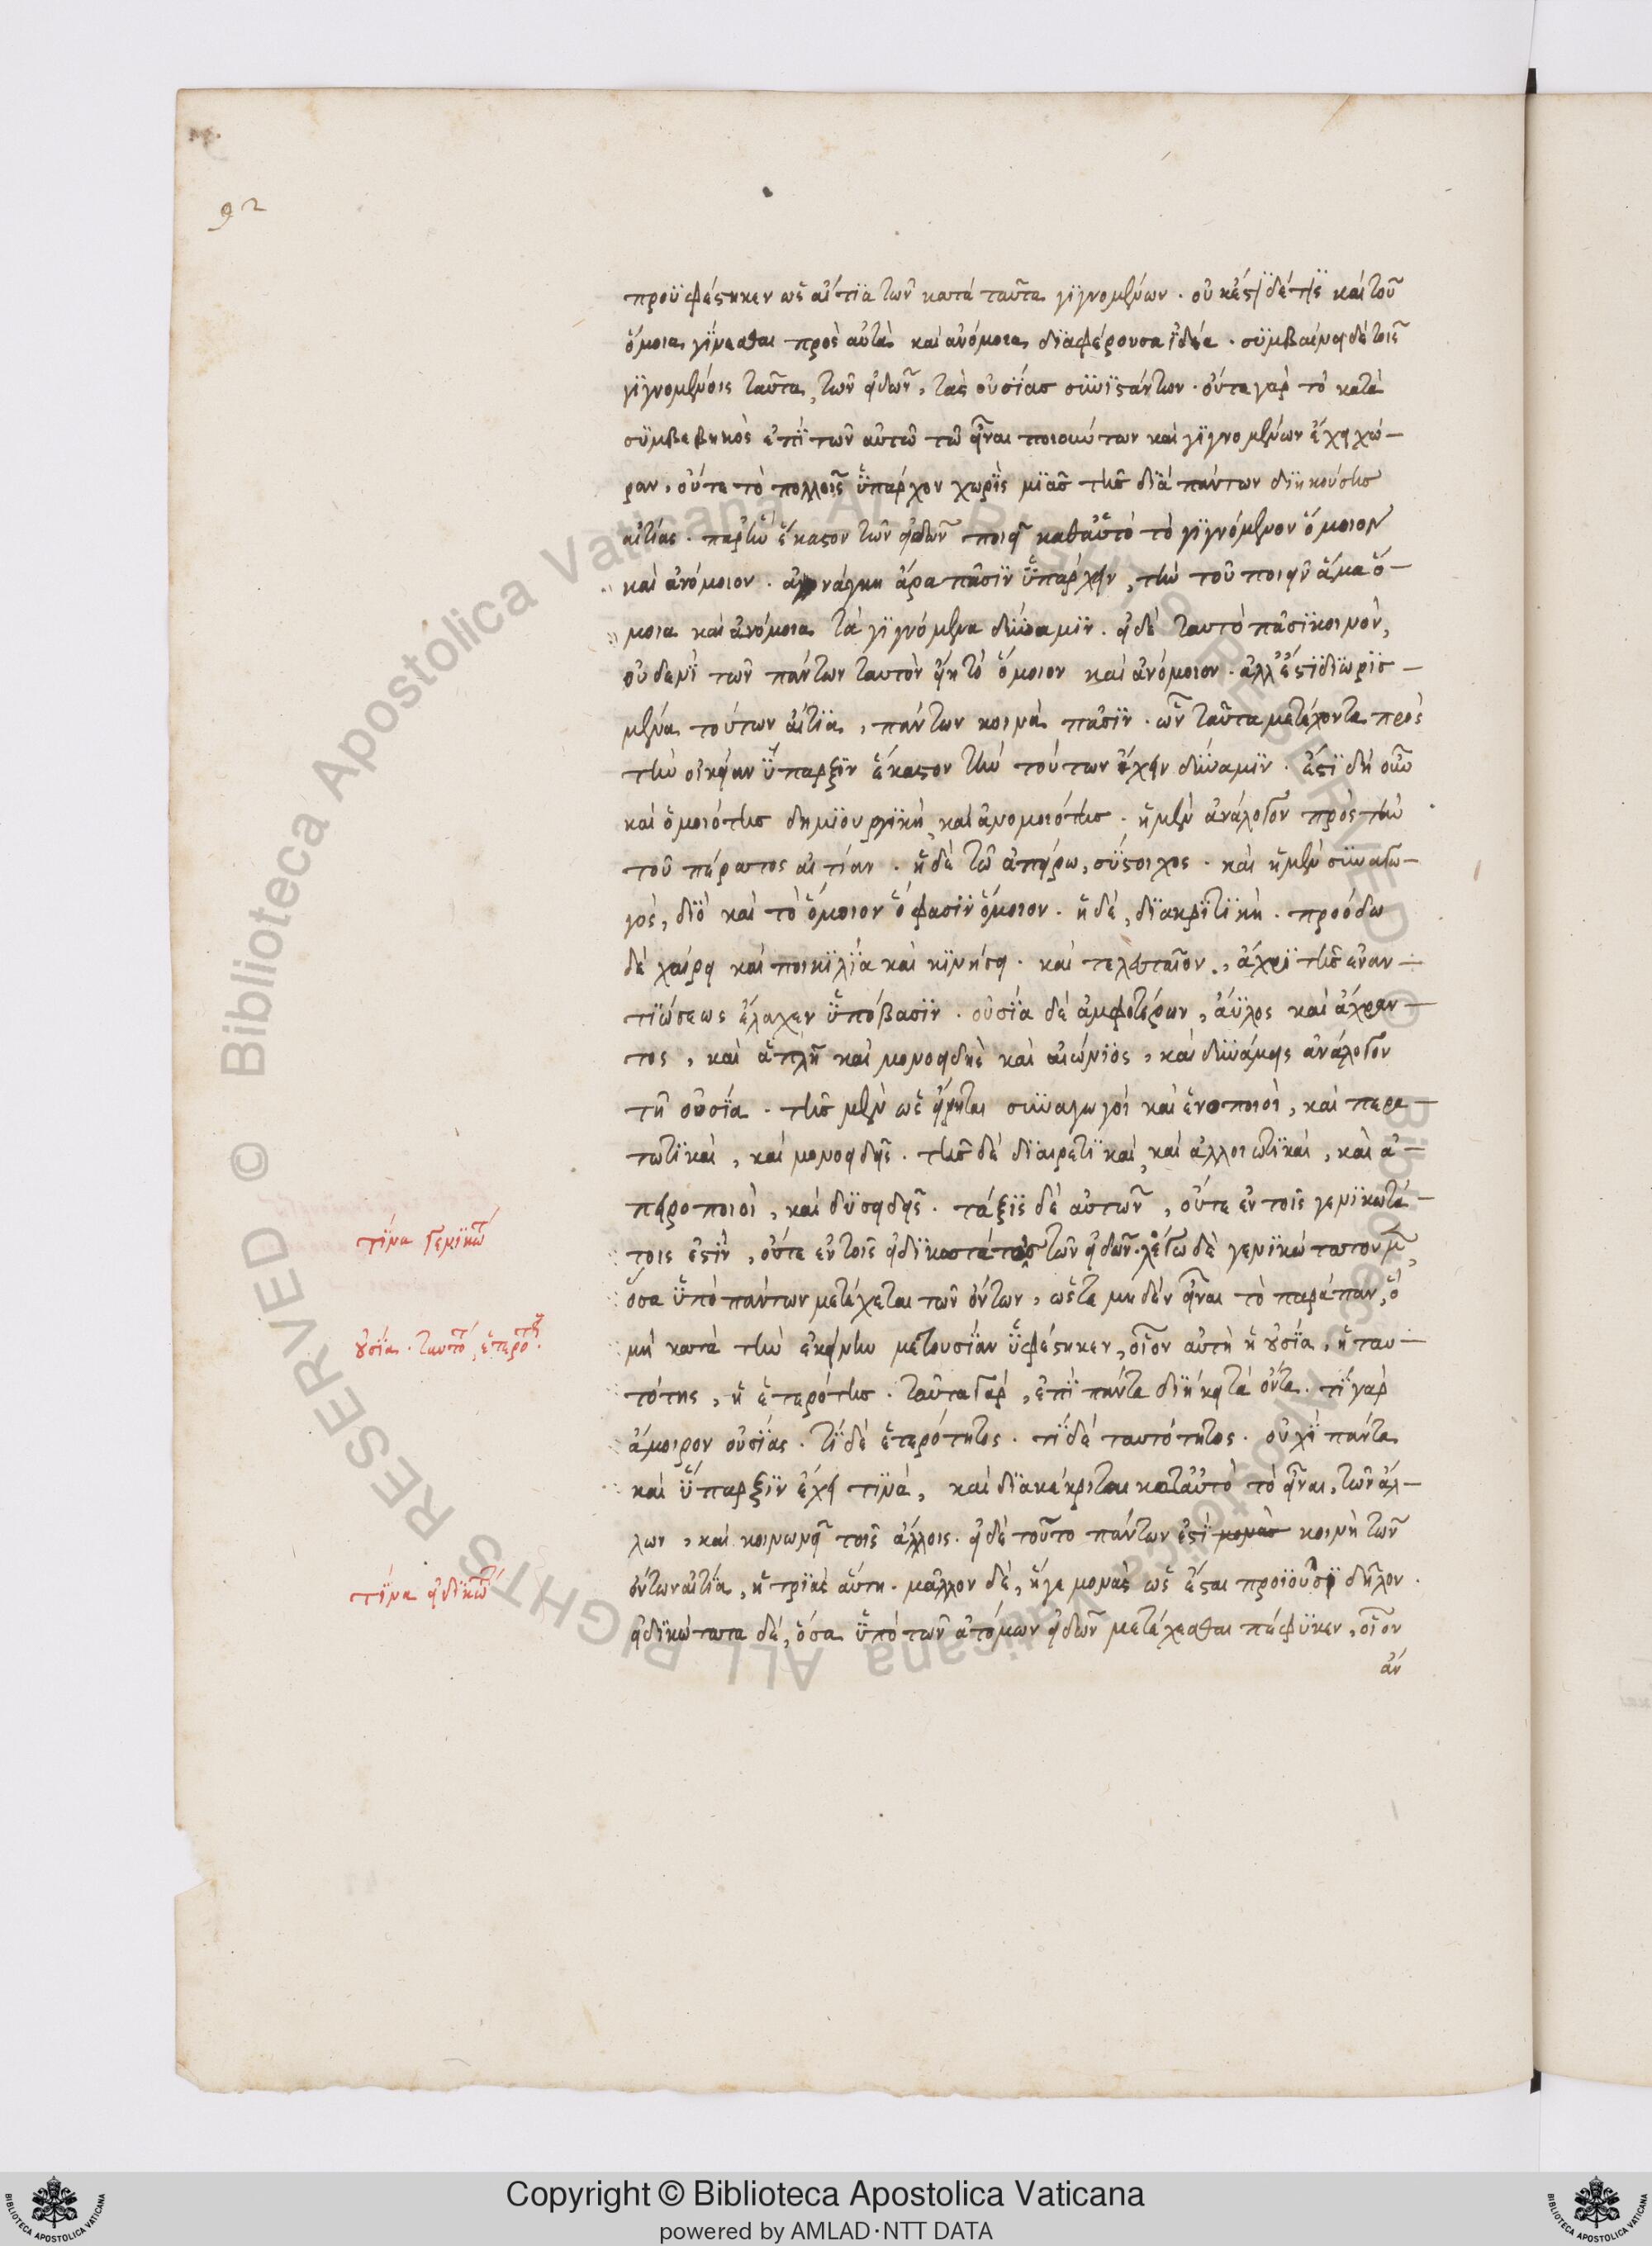 92
προϋφέστηκεν ὡς αἰτία τῶν κατὰ ταῦτα γιγνομένων. οὐκ ἔστι δέ τις καὶ τοῦ
ὅμοια γίνεσθαι πρὸς αὐτὰ καὶ ἀνόμοια διαφέρουσα ἰδέα. συμβαίνει δὲ τοῖς
γιγνομένοις ταῦτα, τῶν εἰδῶν, τὰς οὐσίας συνιστάντων. οὔτε γὰρ τὸ κατὰ
συμβεβηκὸς ἐπὶ τῶν αὐτῶ τῶ εἶναι ποιούντων καὶ γιγνομένων ἔχει χώ-
ραν, οὔτε τὸ πολλοῖς ὑπάρχον χωρὶς μιᾶς τῆς διὰ πάντων διηκούσης
αἰτίας. παρ' ἣν ἕκαστον τῶν εἰδῶν ποιεῖ καθ' αὑτὸ τὸ γιγνόμενον ὅμοιον
καὶ ἀνόμοιον. ἀνάγκη ἄρα πᾶσιν ὑπάρχειν, τὴν τοῦ ποιεῖν ἅμα ὅ-
μοια καὶ ἀνόμοια τὰ γιγνόμενα δύναμιν. εἰ δὲ ταυτὸ πᾶσι κοινὸν,
οὐδενὶ τῶν πάντων ταυτὸν εἴη τὸ ὅμοιον καὶ ἀνόμοιον. ἀλλ' ἔστι διωρισ-
μένα τούτων αἴτια, πάντων κοινὰ πᾶσιν. ὧν ταῦτα μετέχοντα πρὸς
τὴν οἰκείαν ὕπαρξιν ἕκαστον τὴν τούτων ἔχειν δύναμιν. ἔστι δὴ οὖν
καὶ ὁμοιότης δημιουργικὴ, καὶ ἀνομοιότης. ἡ μὲν ἀνάλογον πρὸς τὴν
τοῦ πέρατος αἰτίαν. ἡ δὲ τῶ ἀπείρω, σύστοιχος. καὶ ἡ μὲν συναγω-
γὸς, διὸ καὶ τὸ ὅμοιον ὅ φασιν ὅμοιον. ἡ δὲ, διακριτικὴ. προόδω
δὲ χαίρει καὶ ποικιλία καὶ κινήσει. καὶ τελευταῖον, ἄχρι τῆς ἐναν-
τιώσεως ἔλαχεν ὑπόβασιν. οὐσία δὲ ἀμφοτέρων, ἄϋλος καὶ ἄχραν-
τος, καὶ ἁπλῆ καὶ μονοειδὴς καὶ αἰώνιος, καὶ δυνάμεις ἀνάλογον
τῆ οὐσία. τῆς μὲν ὡς εἴρηται συναγωγοὶ καὶ ἑνοποιοὶ, καὶ περα-
τωτικαὶ, καὶ μονοειδεῖς. τῆς δὲ διαιρετικαὶ, καὶ ἀλλοιωτικαὶ, καὶ ἀ-
πειροποιοὶ, καὶ δυσειδεῖς. τάξις δὲ αὐτῶν, οὔτε ἐν τοῖς γενικωτά-
τοις ἐστὶν, οὔτε ἐν τοῖς εἰδικωτάτοις τῶν εἰδῶν. λέγω δὲ γενικώτατον μ,
ὅσα ὑπὸ πάντων μετέχεται τῶν ὄντων, ὥστε μηδὲν εἶναι τὸ παράπαν, ὃ
μὴ κατὰ τὴν ἐκείνων μετουσίαν ὑφέστηκεν, οἷον αὐτὴ ἡ οὐσία, ἡ ταυ-
τότης, ἡ ἑτερότης. ταῦτα γὰρ, ἐπὶ πάντα διήκει τὰ ὄντα. τί γὰρ
ἄμοιρον οὐσίας. τί δὲ ἑτερότητος. τί δὲ ταυτότητος. οὐχὶ πάντα
καὶ ὕπαρξιν ἔχει τινὰ, καὶ διακέκριται κατ' αὐτὸ τὸ εἶναι, τῶν ἄλ-
λων, καὶ κοινωνεῖ τοῖς ἄλλοις. εἰ δὲ τοῦτο πάντων ἐστὶ μονὰς κοινὴ τῶν
ὄντων αἰτία, ἡ τριὰς αὕτη. μᾶλλον δὲ, ἥγε μονὰς ὡς ἔσται προϊοῦσι δῆλον.
εἰδικώτατα δὲ, ὅσα ὑπὸ τῶν ἀτόμων εἰδῶν μετέχεσθαι πέφυκεν, οἷον
ἀν
τίνα γενικώτ
οὐσία. ταυτό, ἑτερότη.
τίνα εἰδικώτ
Copyright © Biblioteca Apostolica Vaticana
powered by AMLAD·NTT DATA
BIBLIOTECA APOSTOLICA VATICANA
BIBLIOTECA APOSTOLICA VATICANA
© Biblioteca Apostolica Vaticana ALL RIGHTS RESERVED